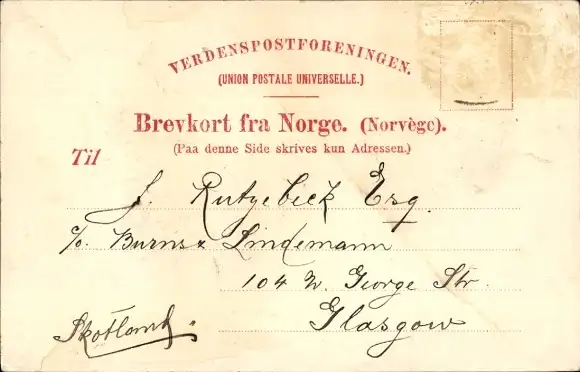 VERDENSPOSTFORENINGEN.
(UNION POSTALE UNIVERSELLE.)
Brevkort fra Norge. (Norvège).
(Paa denne Side skrives kun Adressen.)
Til
J. Rutgebick Esq.
c/o. Burns & Lindemann
104 W. George Str.
Glasgow
Skotland.